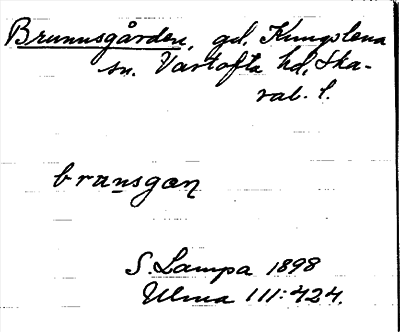 Brunnsgården, gd, Kungslena
sn. Vartofta hd, Ska-
rab. l.
brunsgan
S. Lampa 1898
Ulma 111:424.